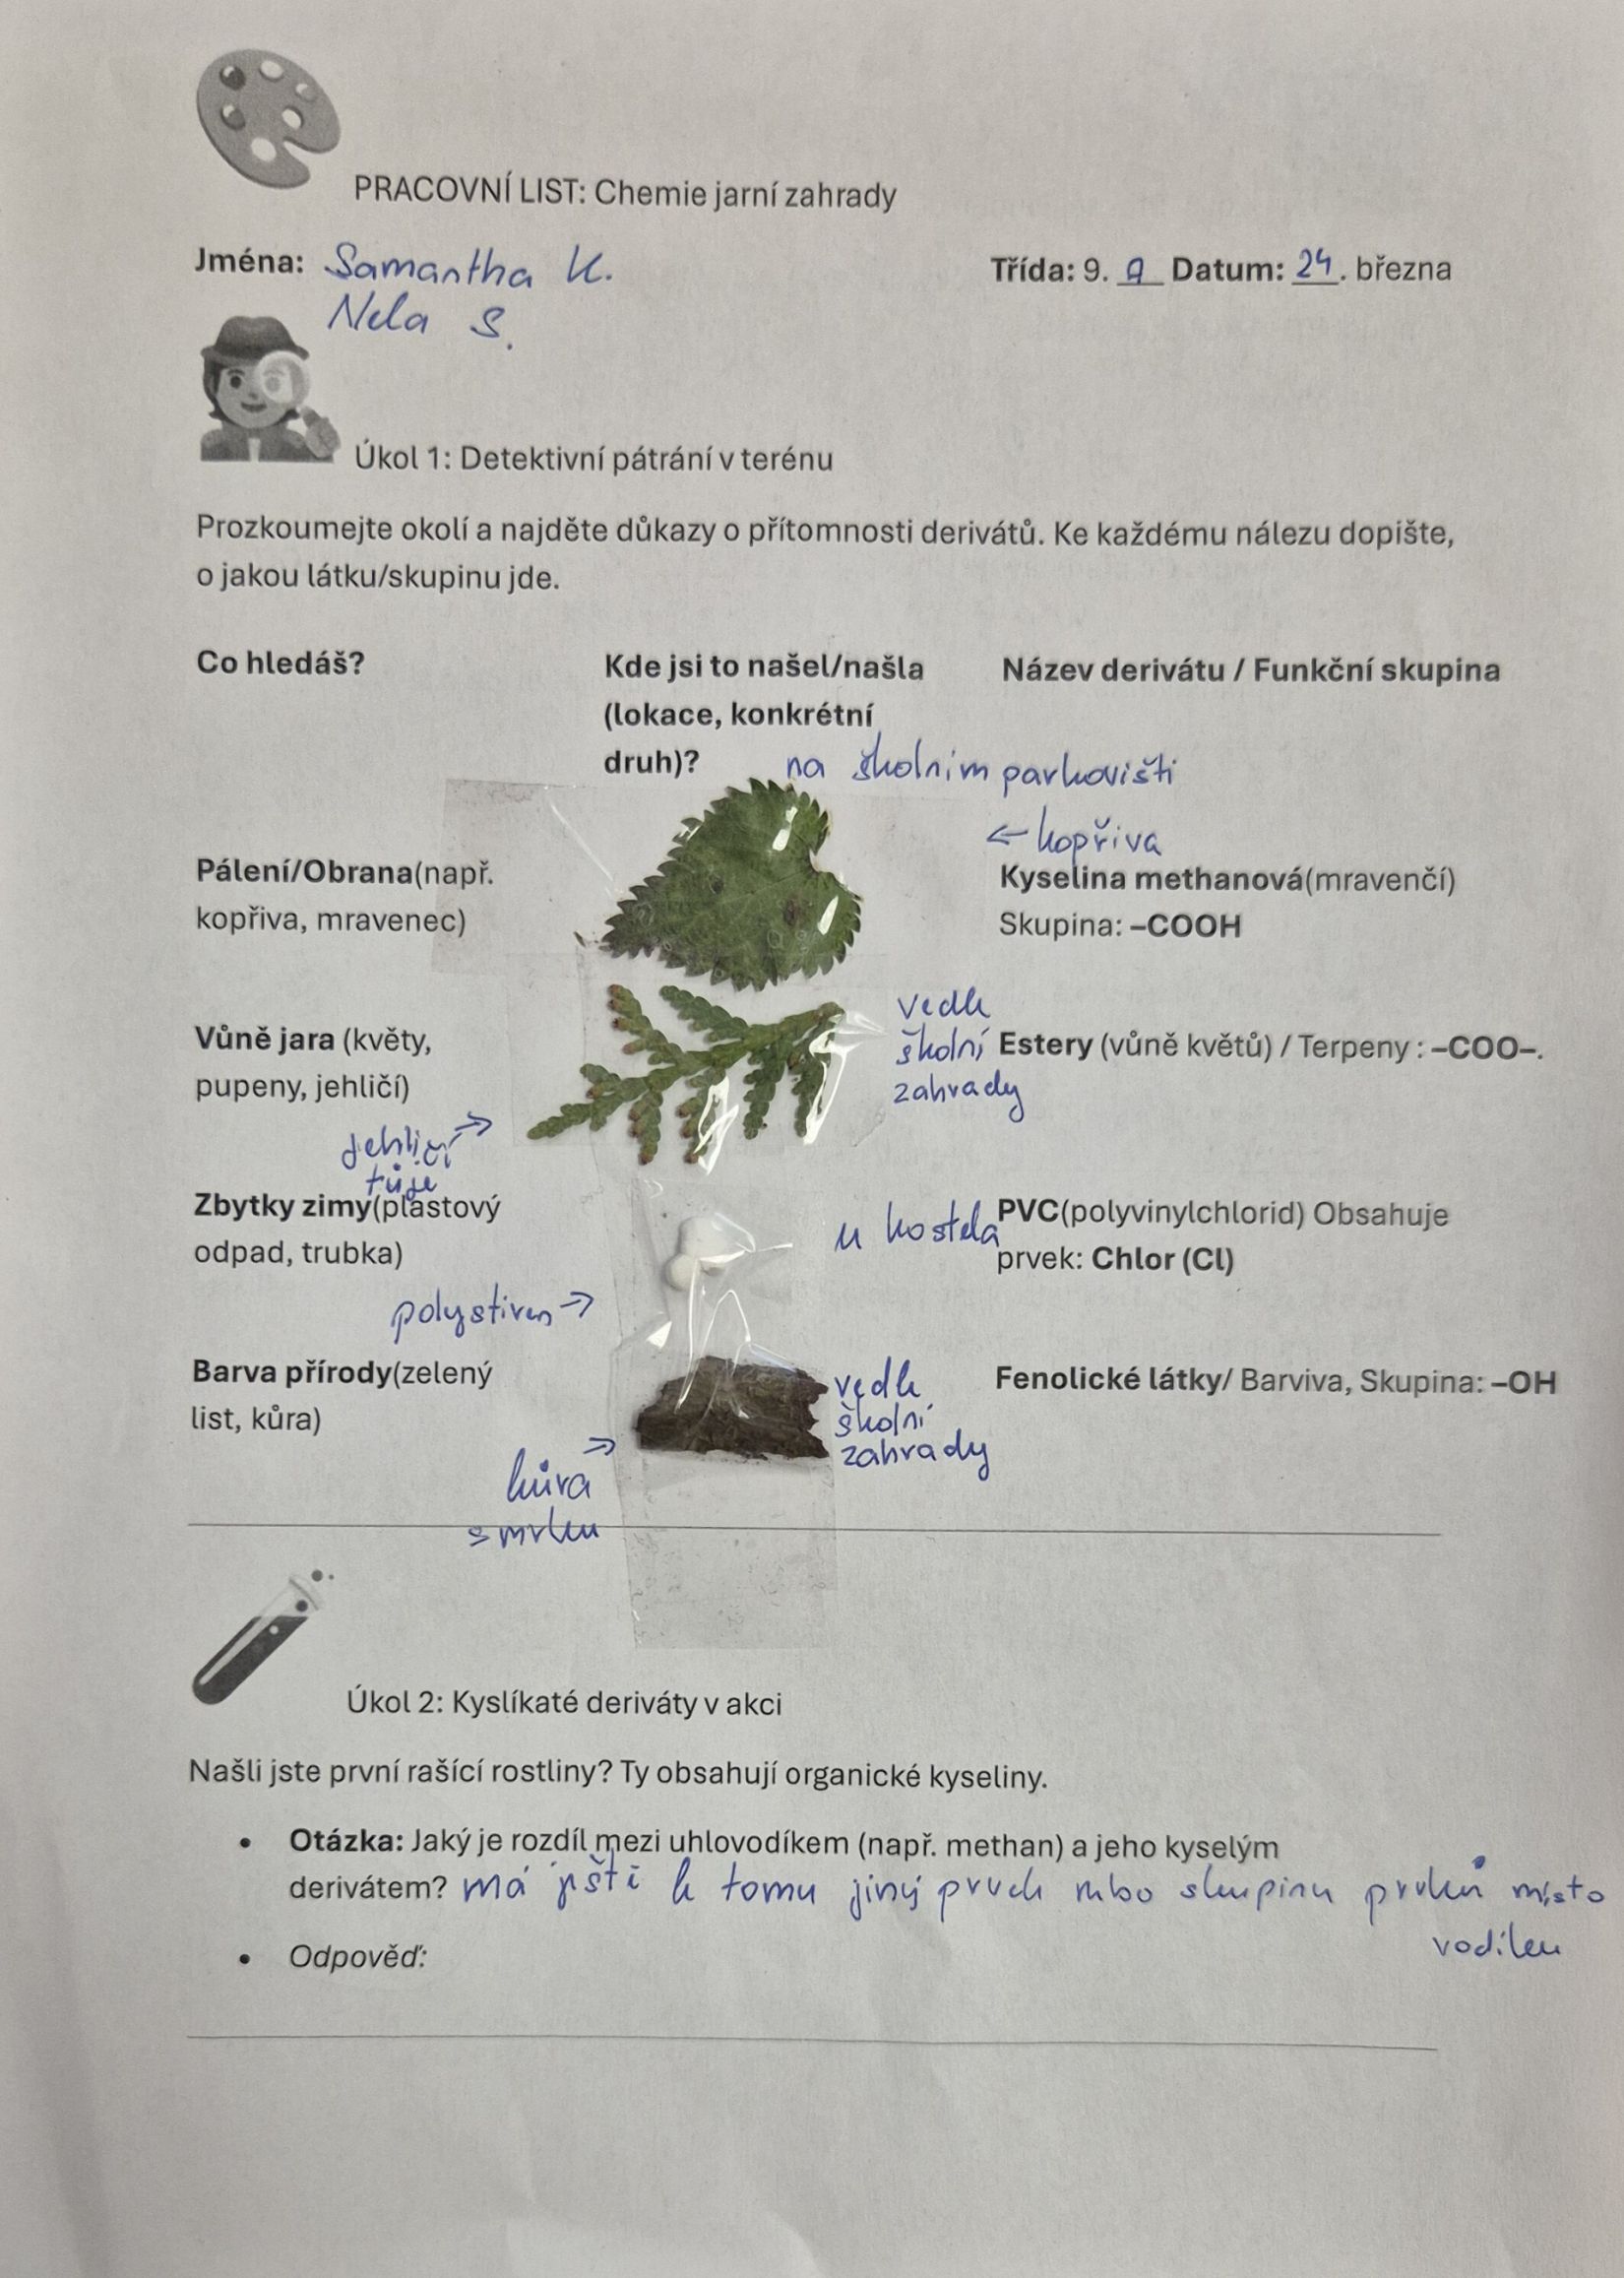 PRACOVNÍ LIST: Chemie jarní zahrady
Jména: Samantha K.
Třída: 9. A Datum: 24. března
Nela S.
Úkol 1: Detektivní pátrání v terénu
Prozkoumejte okolí a najděte důkazy o přítomnosti derivátů. Ke každému nálezu dopište,
o jakou látku/skupinu jde.
Co hledáš?
Kde jsi to našel/našla
(lokace, konkrétní
druh)?
Název derivátu / Funkční skupina
na školním parkovišti
← kopřiva
Pálení/Obrana(např.
kopřiva, mravenec)
Kyselina methanová(mravenčí)
Skupina: –COOH
Vůně jara (květy,
pupeny, jehličí)
Jehličí →
túje
vedle
školní
zahrady
Estery (vůně květů) / Terpeny : –COO–.
Zbytky zimy(plastový
odpad, trubka)
polystiren →
u kostela
PVC(polyvinylchlorid) Obsahuje
prvek: Chlor (Cl)
Barva přírody(zelený
list, kůra)
kůra →
smrku
vedle
školní
zahrady
Fenolické látky/ Barviva, Skupina: –OH
Úkol 2: Kyslíkaté deriváty v akci
Našli jste první rašící rostliny? Ty obsahují organické kyseliny.
• Otázka: Jaký je rozdíl mezi uhlovodíkem (např. methan) a jeho kyselým
derivátem? má ještě k tomu jiný prvek nebo skupinu prvků místo
vodíku
• Odpověď: